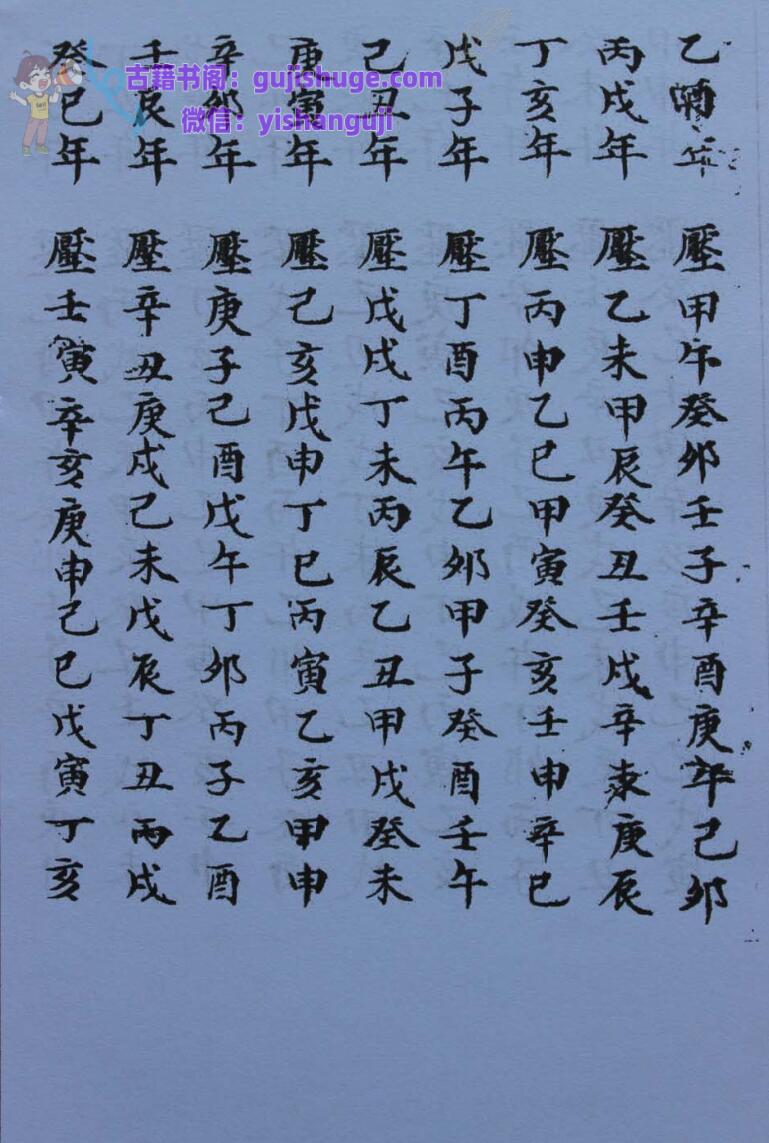 古籍书阁：gujishuge.com
微信：yishanguji
乙酉年 壓甲午癸卯壬子辛酉庚午己卯
丙戌年 壓乙未甲辰癸丑壬戌辛未庚辰
丁亥年 壓丙申乙巳甲寅癸亥壬申辛巳
戊子年 壓丁酉丙午乙卯甲子癸酉壬午
己丑年 壓戊戌丁未丙辰乙丑甲戌癸未
庚寅年 壓己亥戊申丁巳丙寅乙亥甲申
辛卯年 壓庚子己酉戊午丁卯丙子乙酉
壬辰年 壓辛丑庚戌己未戊辰丁丑丙戌
癸巳年 壓壬寅辛亥庚申己巳戊寅丁亥